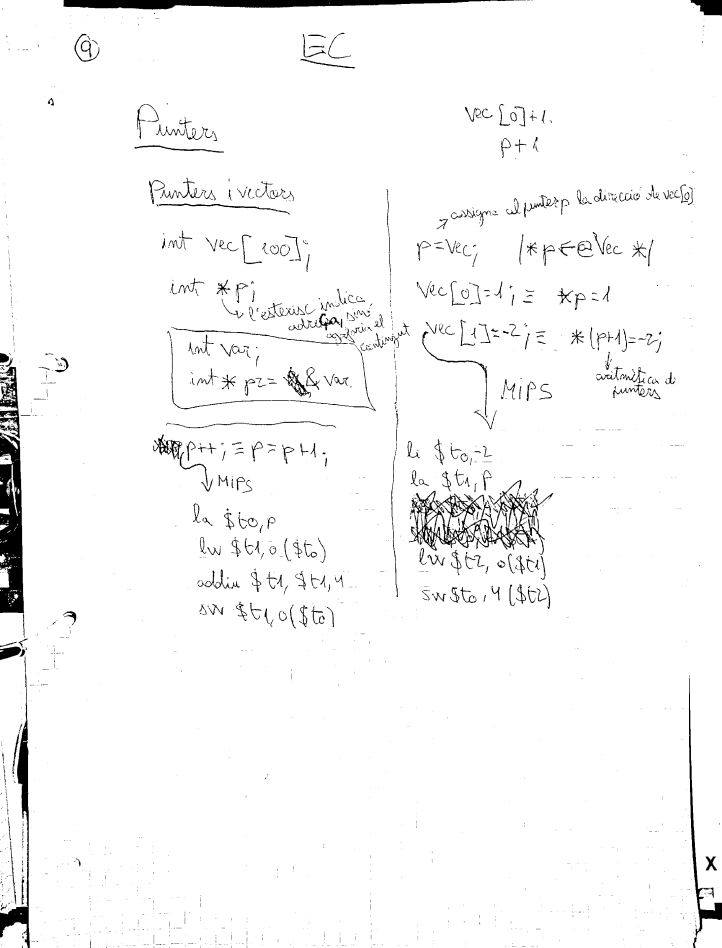 9
EC
Punters
Vec[0]+1.
p+1
Punters i vectors
int vec[100];
int *p;
l'esterisc indica
adreça, sinó
agafaria el
contingut
int var;
int* p2= & var.
p++; ≡ p=p+1;
MiPS
la $t0,p
lw $t1,0($t0)
addiu $t1,$t1,4
sw $t1,0($t0)
assigna al punter p la direcció de vec[0]
p=Vec; /*p←@Vec */
Vec[0]=1; ≡ *p=1
Vec[1]=-2; ≡ *(p+1)=-2;
aritmètica de
punters
MiPS
li $t0,-2
la $t1,P
lw $t2, 0($t1)
sw $t0,4($t2)
X